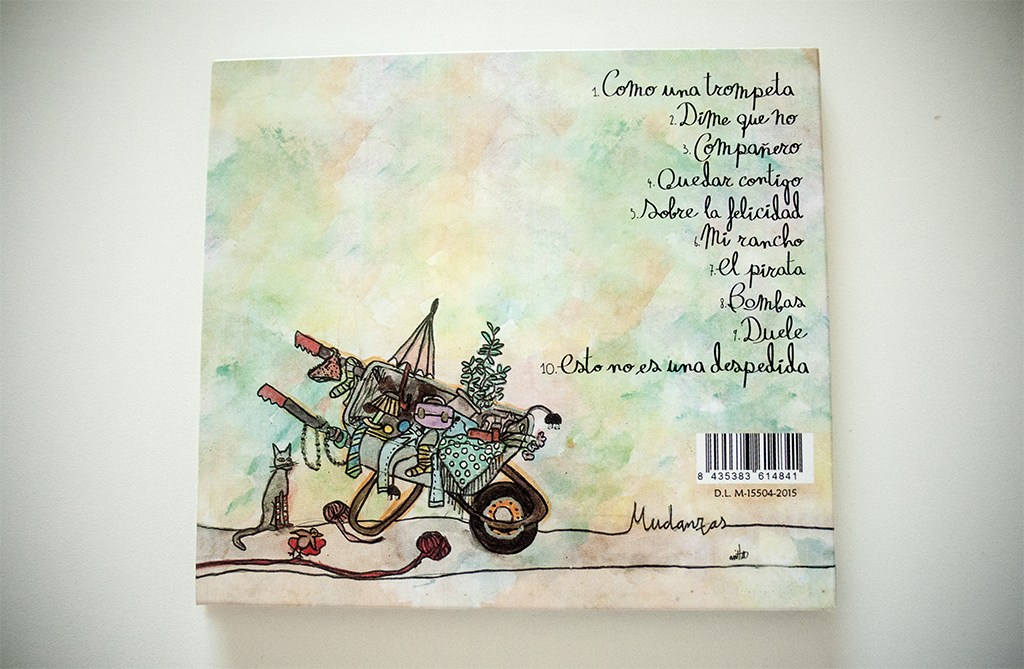 1. Como una trompeta
2. Dime que no
3. Compañero
4. Quedar contigo
5. Sobre la felicidad
6. Mi rancho
7. El pirata
8. Bombas
9. Duele
10. Esto no es una despedida
8 435383 614841
D.L. M-15504-2015
Mudanzas